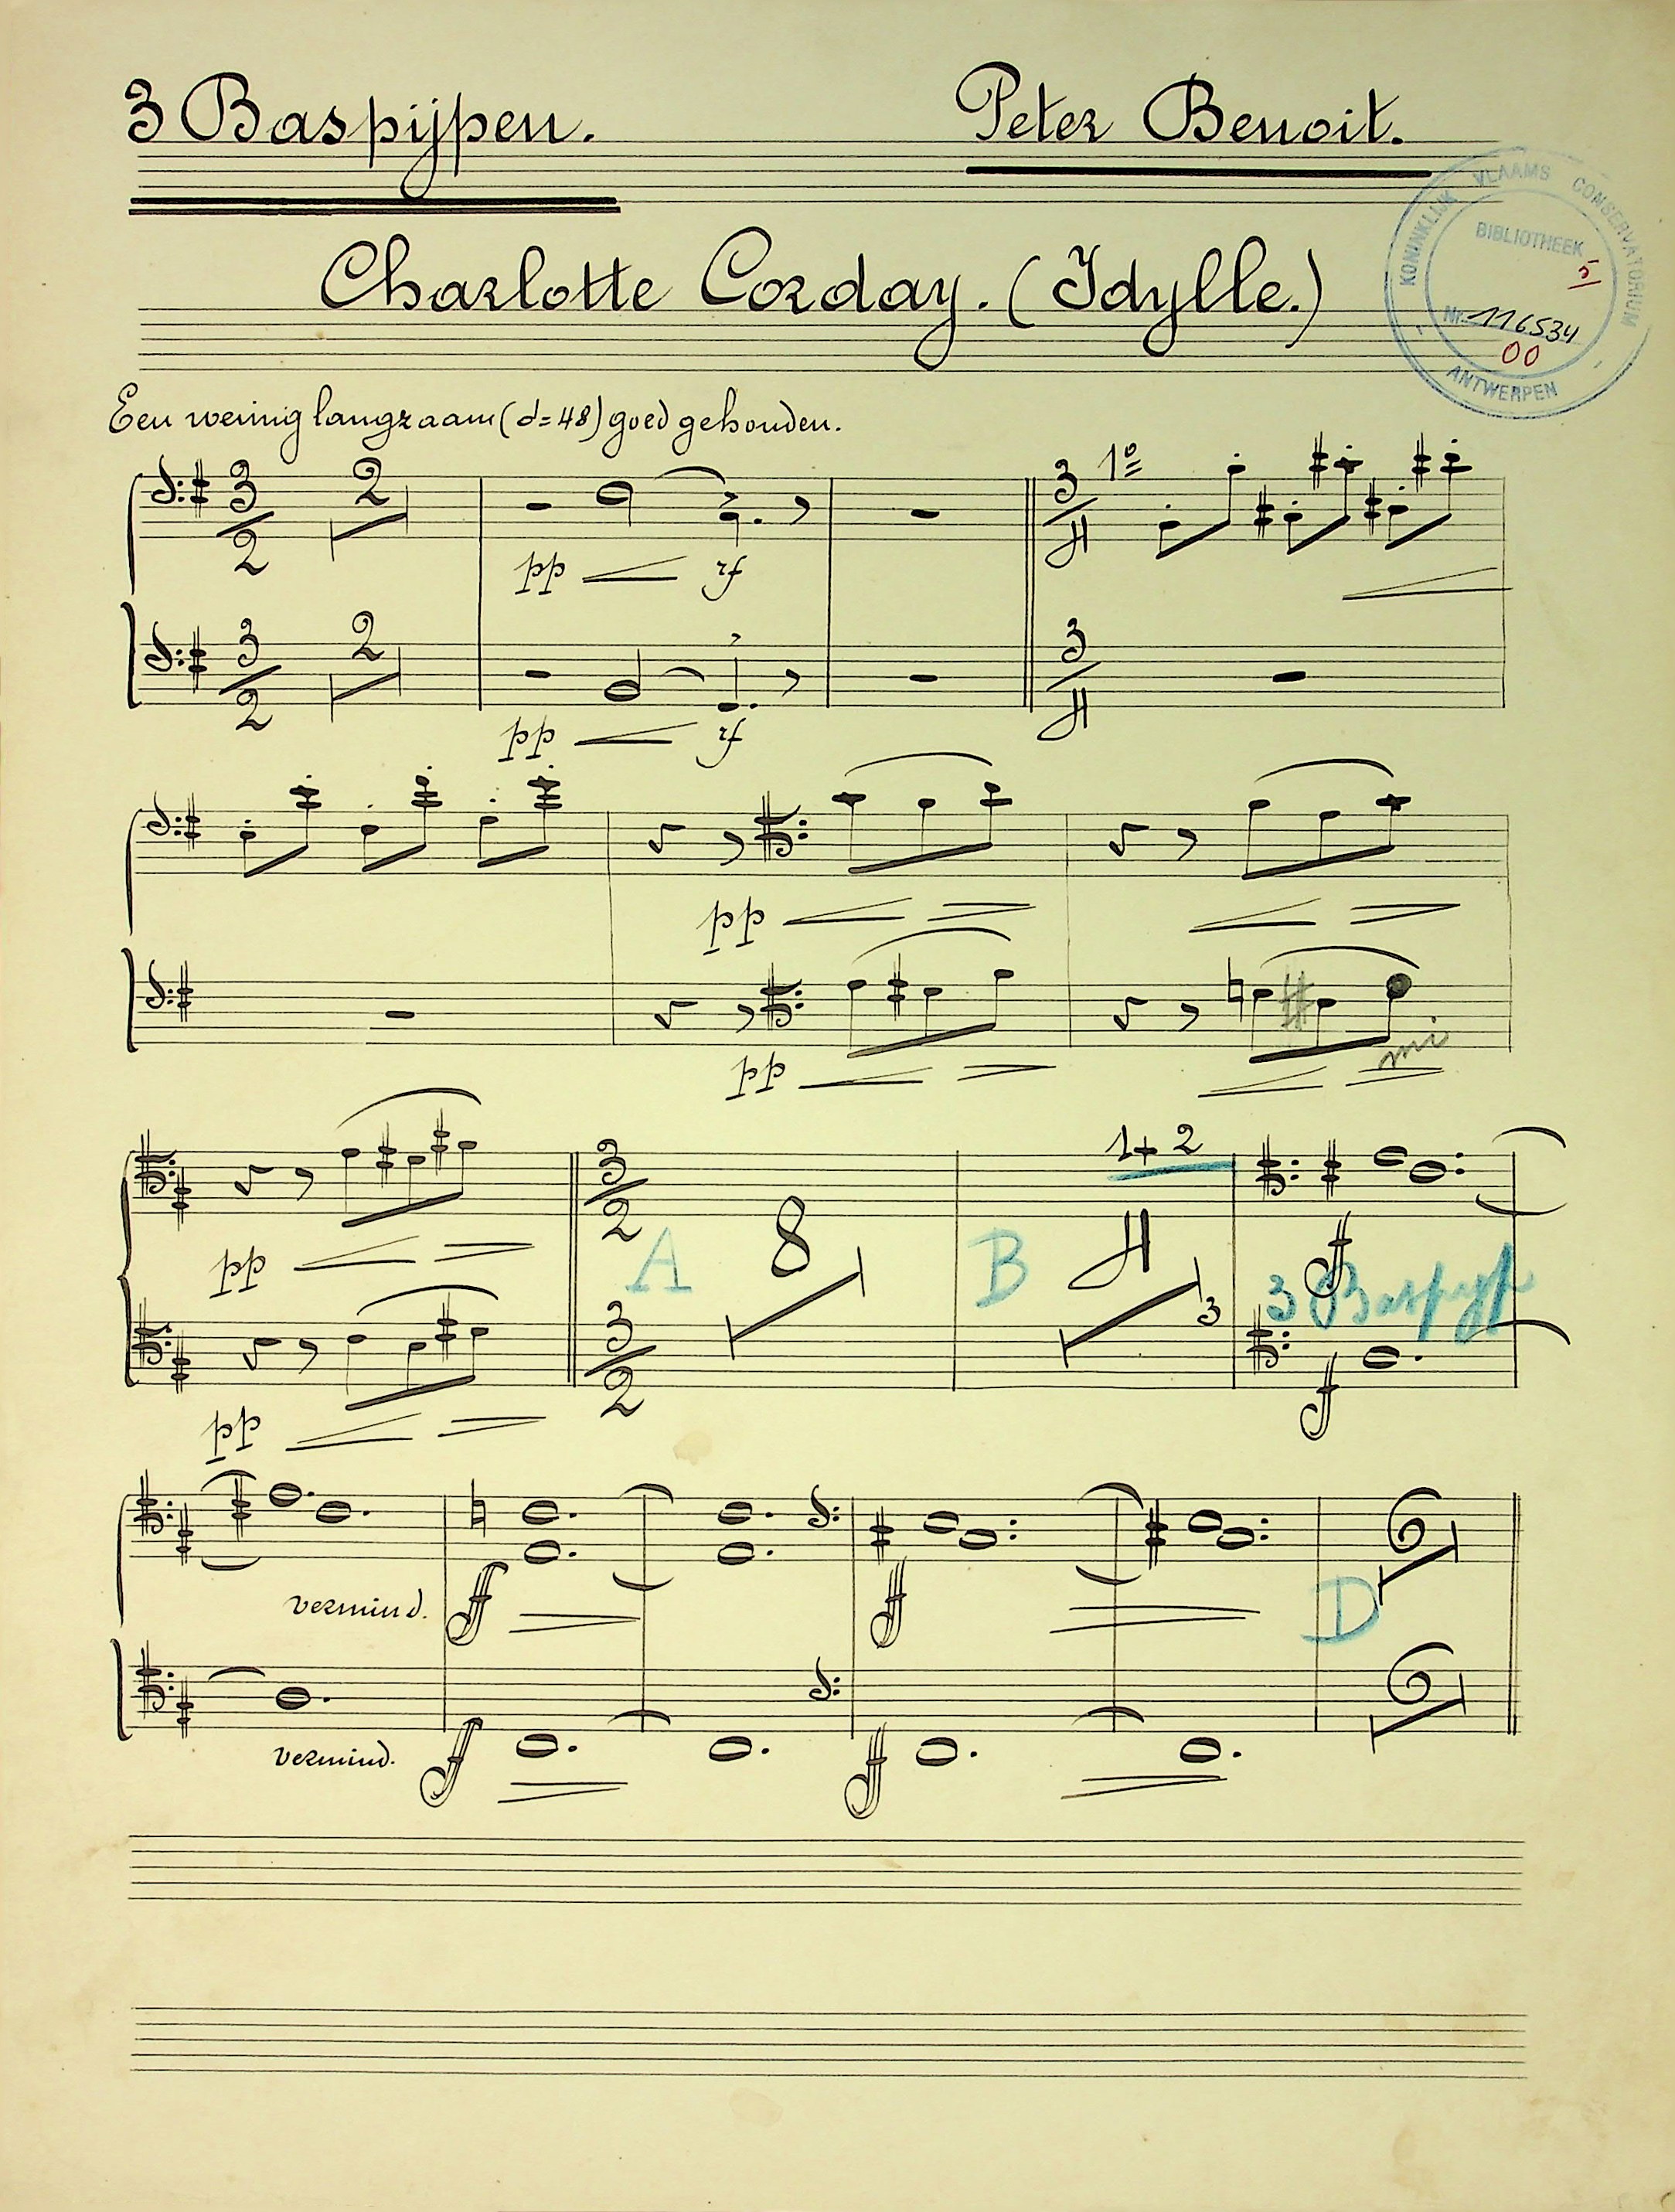 3 Baspijpen.
Peter Benoit.
KONINKLIJK VLAAMS CONSERVATORIUM
BIBLIOTHEEK
5
Nr. 116534
00
- ANTWERPEN -
Charlotte Corday. (Idylle.)
Een weinig langzaam (d=48) goed gehouden.
3 2 2 3 4 1º
pp rf
3 2 2 3 4
pp rf
pp
pp
mi
3 2 8 1+2 4 3
pp A B f
3 Baspijp
3 2
pp f
vermind. f f D 6
vermind. f f 6